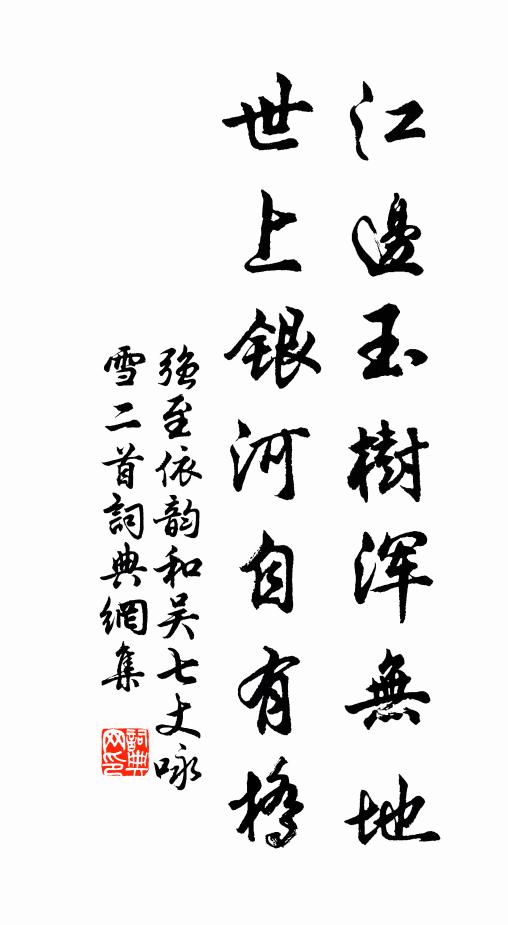 江邊玉樹渾無地
世上銀河自有橋
强至依韵和吴七丈咏
雪二首詞典網集
詞典网印